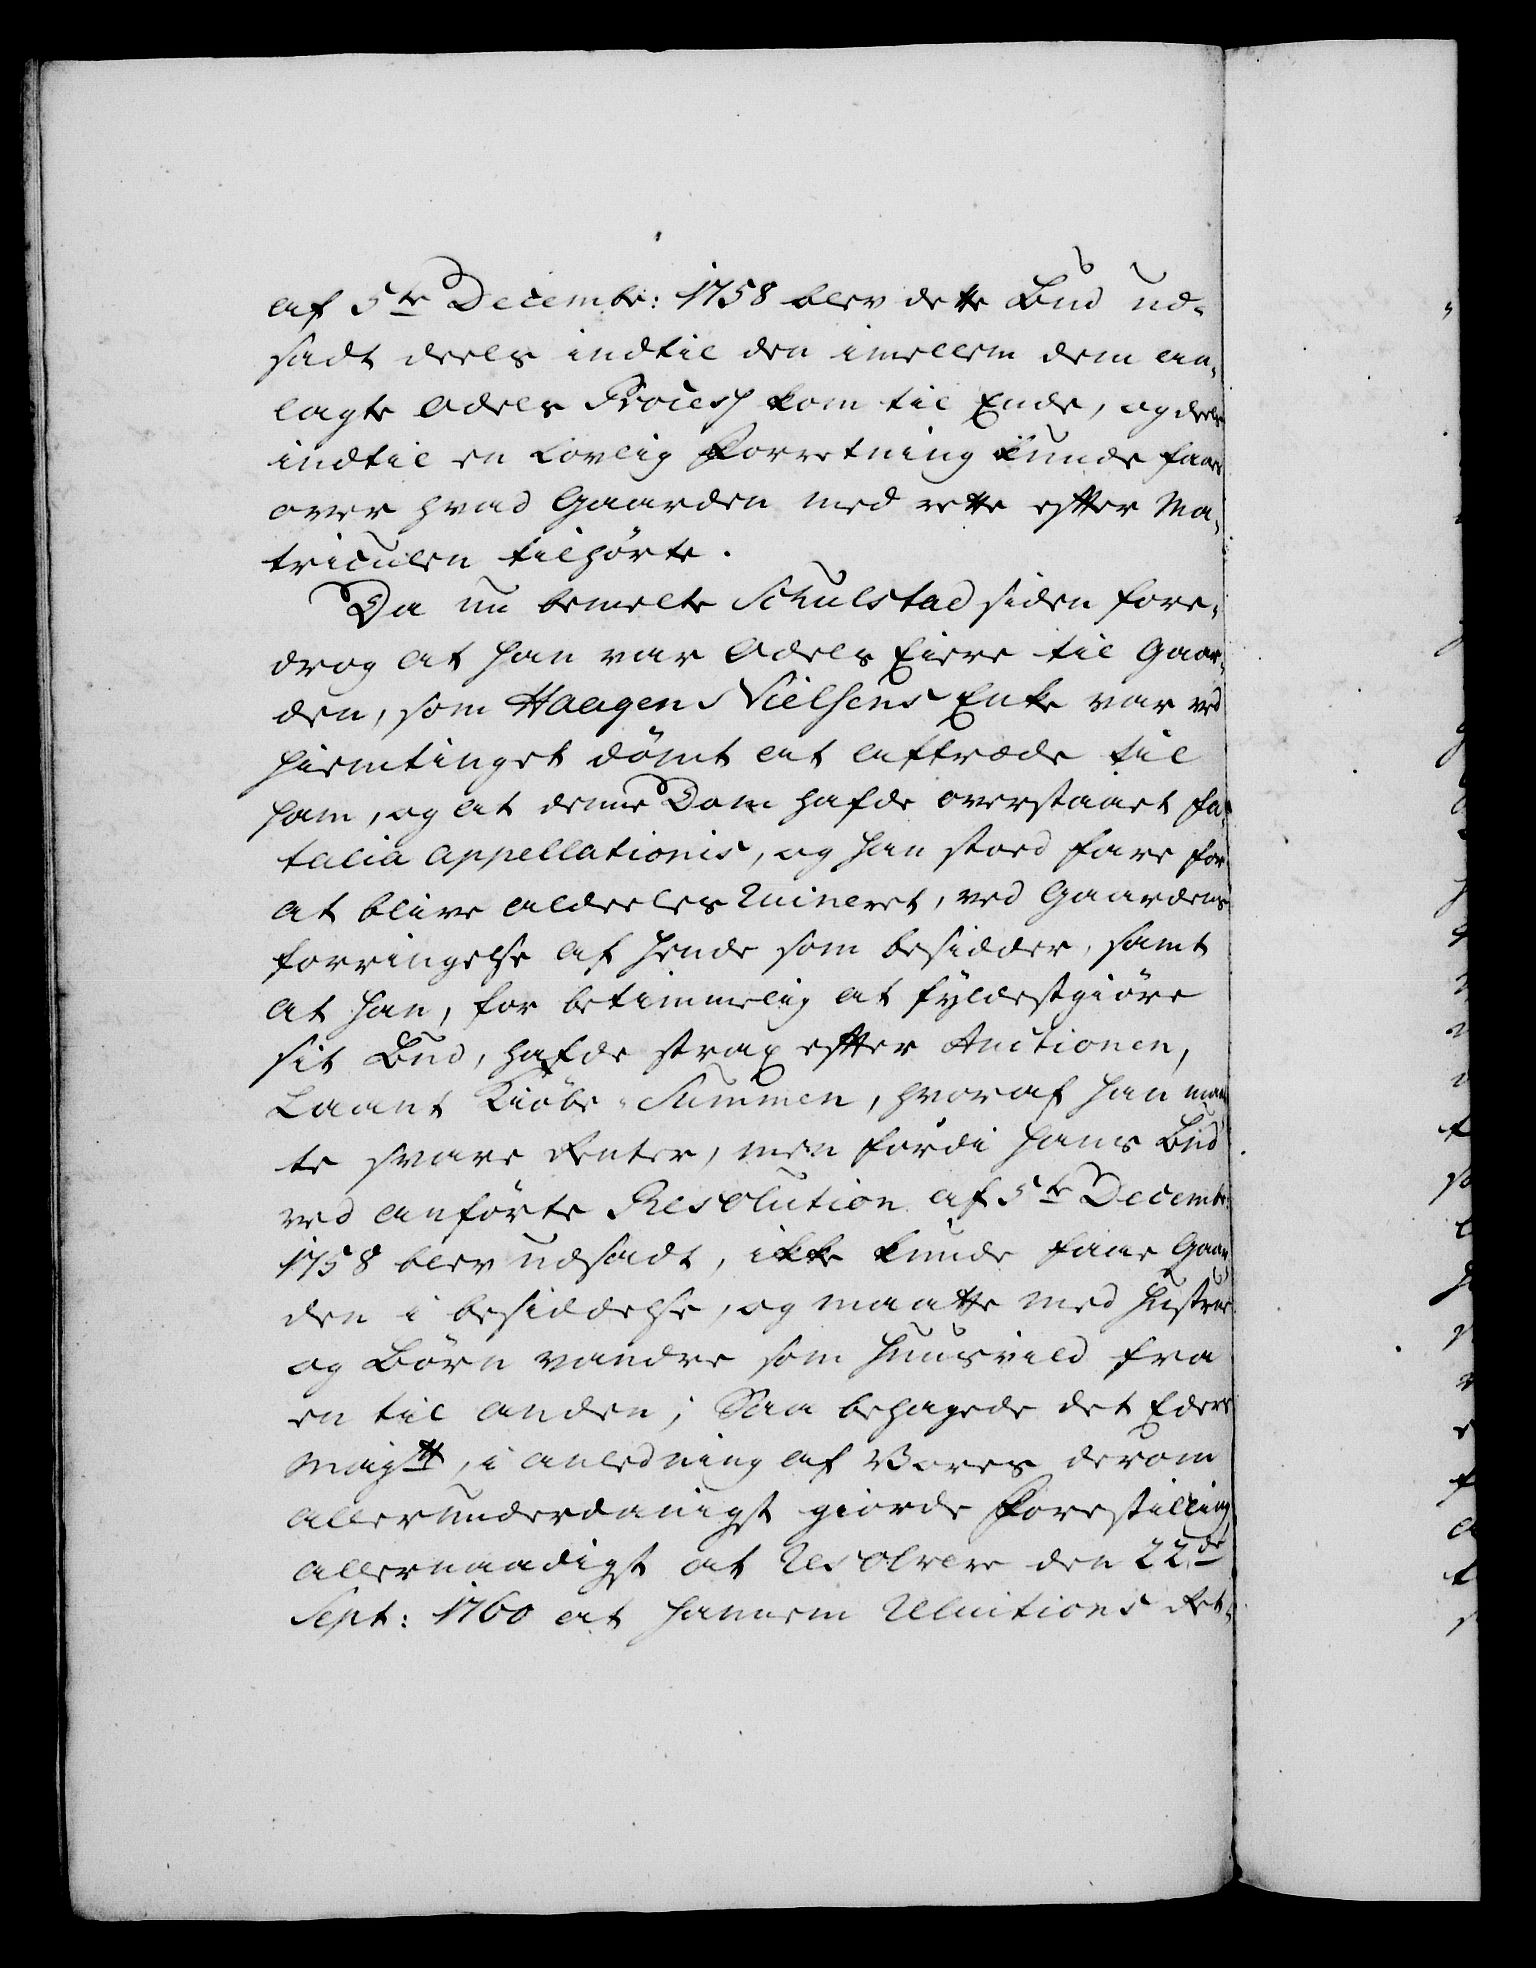 af 5te Decembr: 1758 blev dette Bud ud-
sadt deels indtil den imellem dem an-
lagte Odels Process kom til Ende, og deels
indtil en Lovlig Forretning kunde faaes
over hvad Gaarden med rette efter Ma-
triculen tilhörte.
Da nu bemelte Schulstad siden fore-
drog at han var Odels Eiere til Gaar-
den, som Haagen Nielsens Enke var ved
Hiemtinget dömt at aftræde til
ham, og at denne Dom hafde overstaaet fa-
talia appellationis, og han stoed fare for
at blive aldeeles Ruineret, ved Gaardens
forringelse af hende som besidder, samt
at han, for betimmelig at fyldestgiöre
sit Bud, hafde strax efter Auctionen,
Laant Kiöbe-Summen, hvoraf han maat-
te svare Renter, men fordi hans Bud
ved anförte Resolution af 5te Decembr:
1758 blev udsadt, ikke kunde faae Gaar-
den i besiddelse, og maatte med Hustrue
og Börn vandre som huusvild fra
en til anden; Saa behagede det Eders
Maytt, i anledning af Vores derom
allerunderdanigst giorde Forestilling
allernaadigst at Resolvere den 22de
Sept: 1760 at hannem Reluitions Ret-